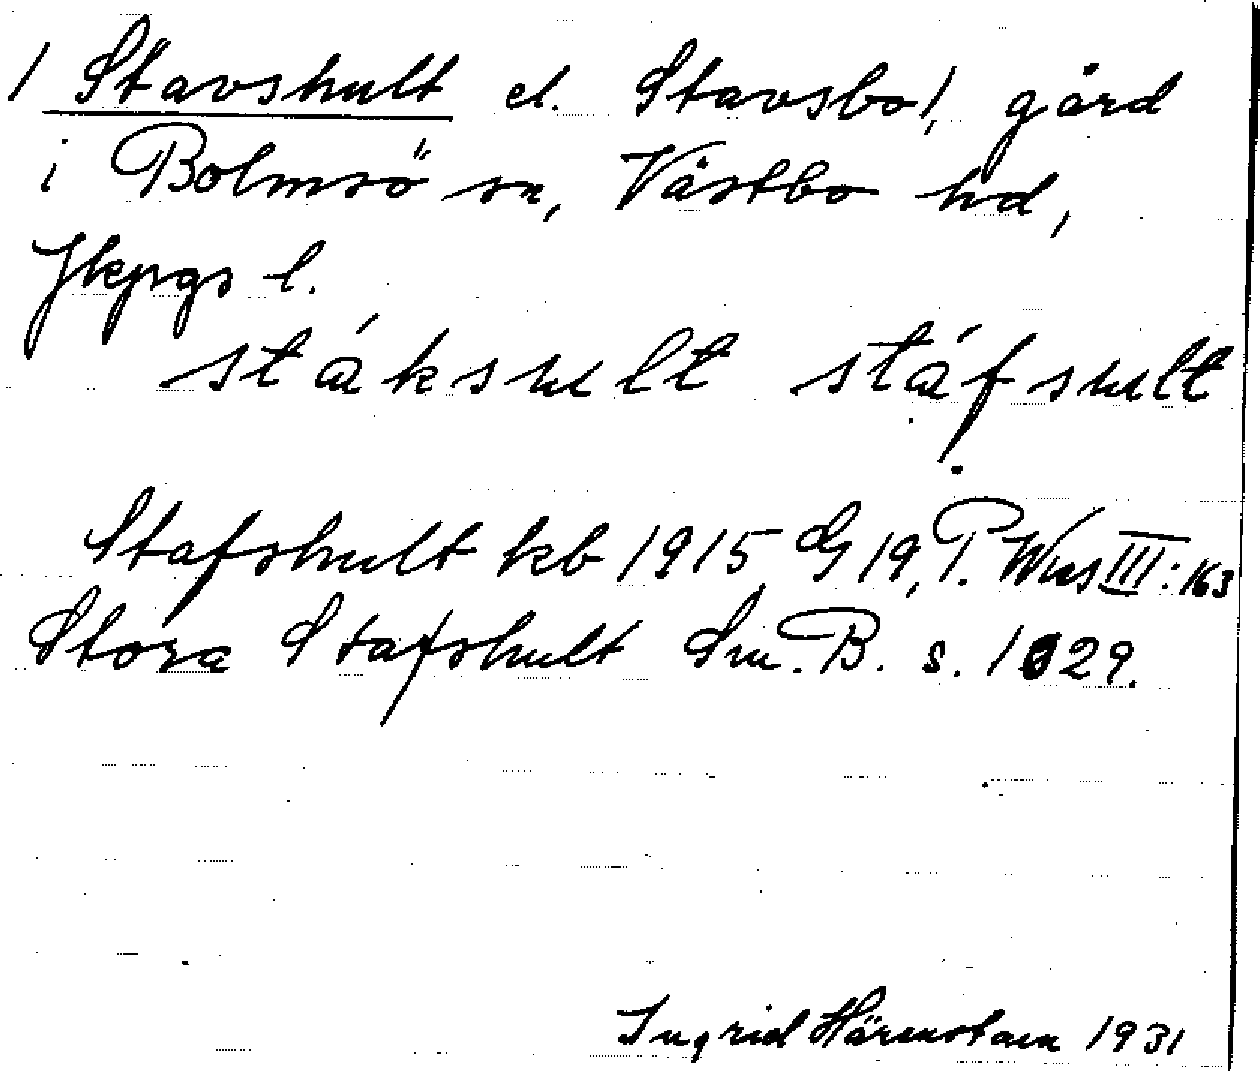 / Stavshult el. Stavsbo/, gård
i Bolmsö sn, Västbo hd,
Jkpgs l.
stáksult stáfsult
Stafshult kb 1915 G 19, P. Wns III: 163
Stora Stafshult Sm. B. s. 1029.
Ingrid Härenstam 1931